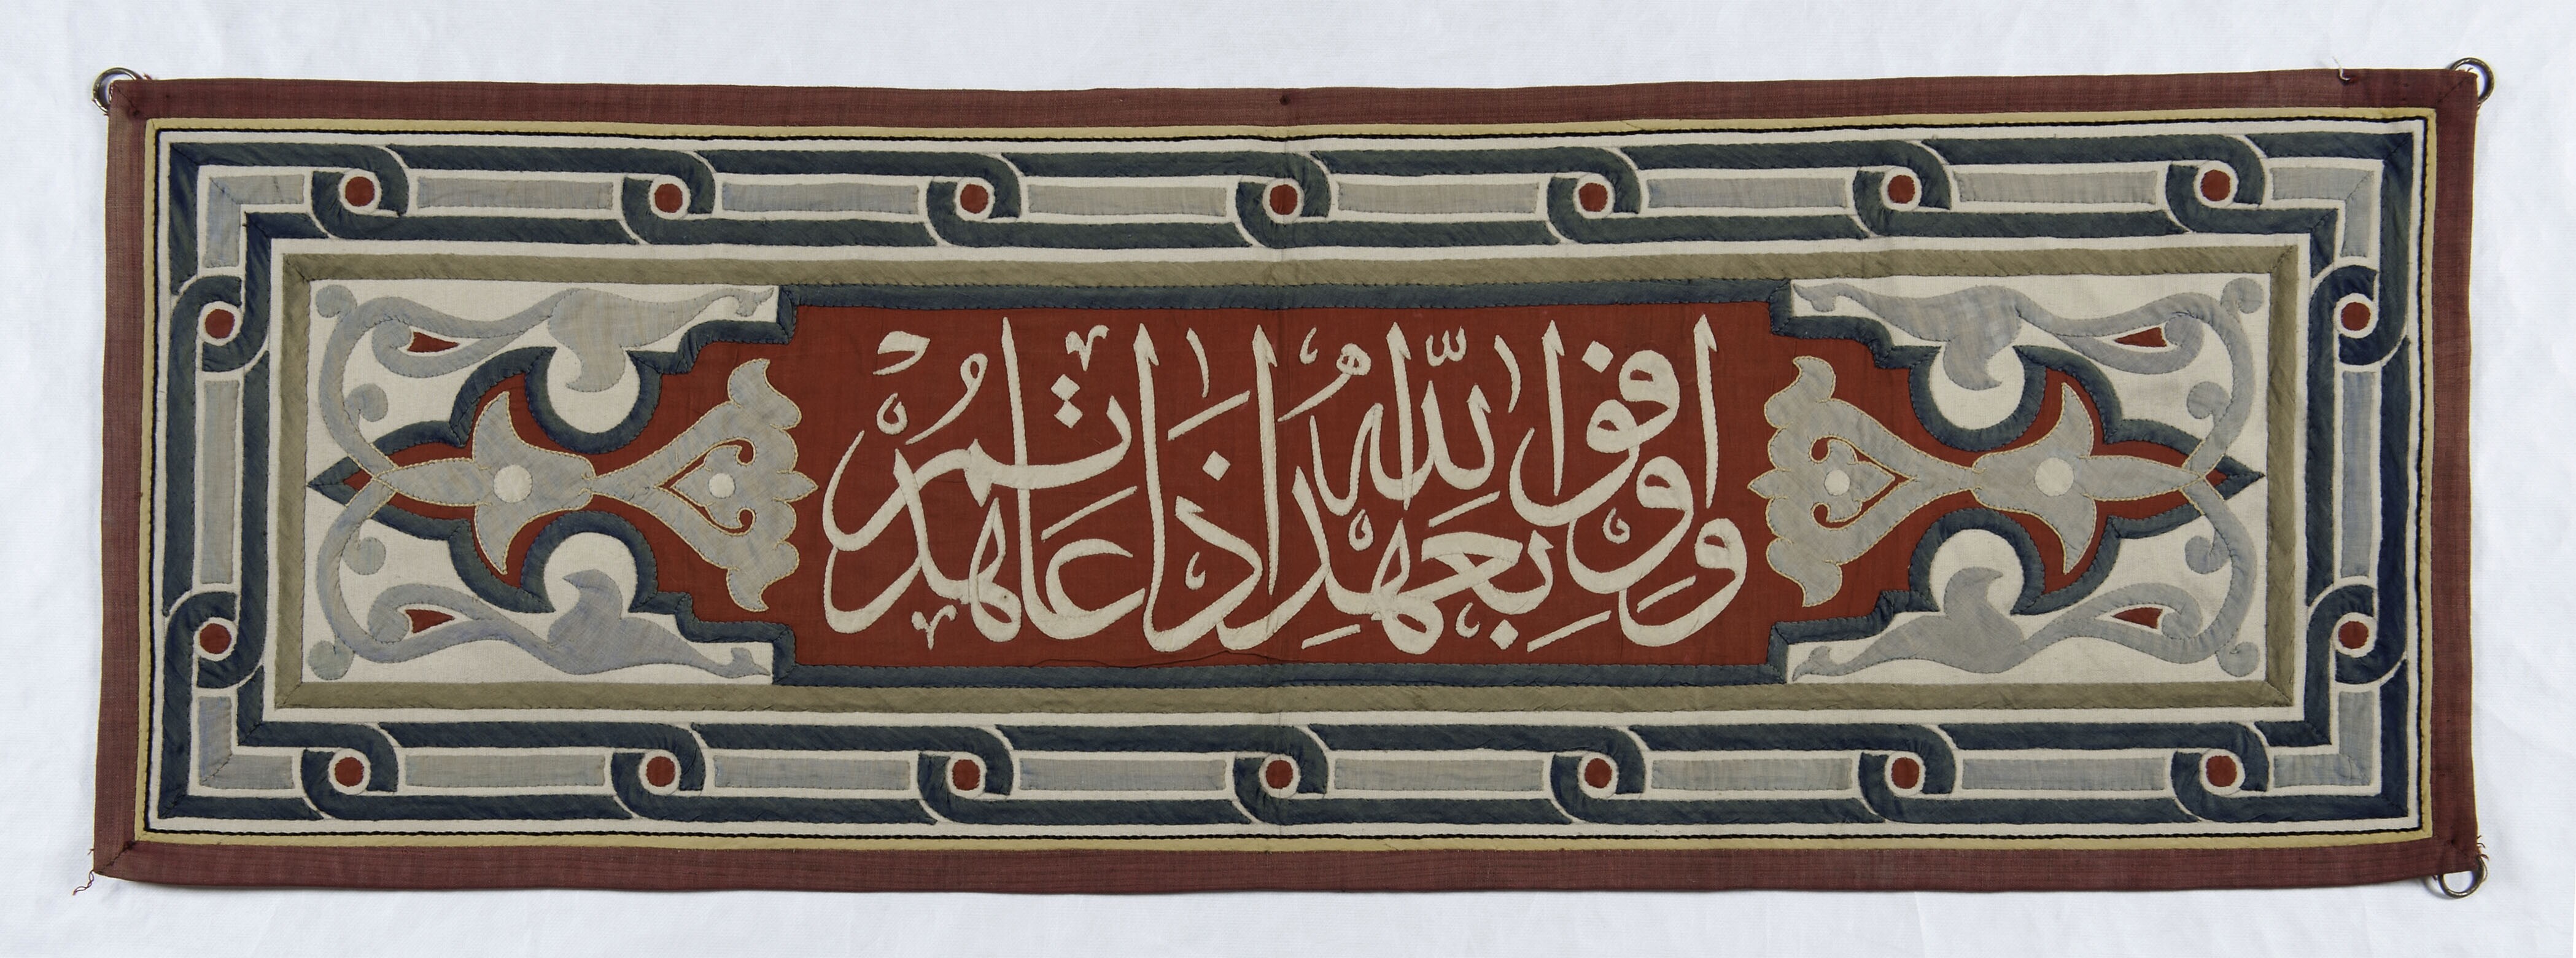 وَاَوْفُوا بِعَهْدِ اللّٰهِ اِذَا عَاهَدْتُمْ